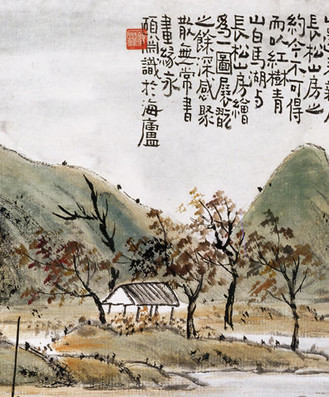 長松山房之
約今不可得
而以紅樹青
山白馬湖与
長松山房繪
爲一圖展翫
之餘深感聚
散無常書
畫緣永
頤淵識於海廬